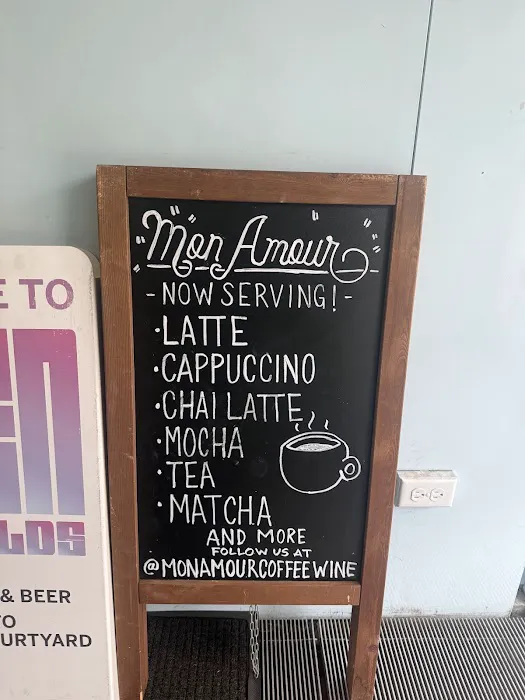 Mon Amour
-NOW SERVING!-
·LATTE
·CAPPUCCINO
·CHAI LATTE
·MOCHA
·TEA
·MATCHA
AND MORE
FOLLOW US AT
@MONAMOURCOFFEEWINE
TO
& BEER